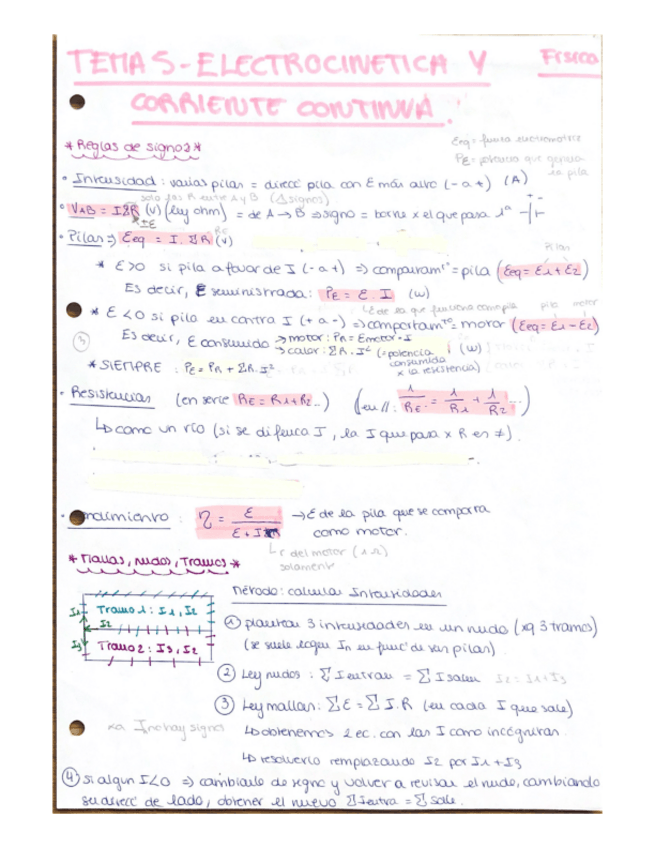 TEMA 5 - ELECTROCINETICA Y Física
CORRIENTE CONTINUA.
* Reglas de signos *
Eeq = fuerza electromotriz
PE = potencia que genera la pila
• Intensidad: varias pilas = direcc° pila con E más alto (- a +) (A)
solo las R entre A y B (Δ signos)
• VAB = IΣR (V) (ley ohm) = de A → B ⇒ signo = borne x el que pasa 1º
• Pilas ⇒ Eeq = I. ΣR (V)
Pilas
* E>0 si pila a favor de I (- a +) ⇒ comportam.to = pila (Eeq = E1 + E2)
Es decir, E suministrada: PE = E . I (W)
pila motor
* E <0 si pila en contra I (+ a -) ⇒ comportam.to = motor (Eeq = E1 - E2)
Es decir, E consumida → motor: PR = Emotor · I
→ calor: ΣR. I² (= potencia consumida x la resistencia) (W)
* SIEMPRE : PE = PR + ΣR. I²
• Resistencias (en serie RE = R1 + R2...) (en //: 1/RE = 1/R1 + 1/R2 ...)
↳ como un río (si se difurca I, la I que pasa x R es ≠).
• Rendimiento : η = E / E + I → E de la pila que se comporta
como motor.
↳ r del motor (1 Ω)
solamente
* Mallas, nudos, Tramos *
Método: calcular Intensidades
I1 Tramo 1: I1, I2
I2
I3 Tramo 2: I3, I2
① plantear 3 intensidades en un nudo (xq 3 tramos)
(se suele elegir In en func° de sus pilas).
② Ley nudos : Σ I entran = Σ I salen I2 = I1 + I3
③ Ley mallas: ΣE = Σ I. R (en cada I que sale)
xa I no hay signo
↳ obtenemos 2 ec. con las I como incógnitas.
↳ resolverlo remplazando I2 por I1 + I3
④ si algun I<0 ⇒ cambiarle de signo y volver a revisar el nudo, cambiando
su direcc° de lado, obtener el nuevo ΣI entra = Σ sale.